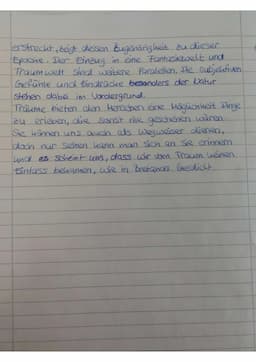 erstreckt, zeigt dessen Zugehörigkeit zu dieser
Epoche. Der Einzug in eine Fantasiewelt und
Traumwelt sind weitere Parallelen. Die subjektiven
Gefühle und Eindrücke besonders der Natur
stehen dabei im Vordergrund.
Träume bieten den Menschen eine Möglichkeit Dinge
zu erleben, die sonst nie geschehen wären.
Sie können uns auch als Wegweiser dienen,
doch nur selten kann man sich an sie erinnern
und es scheint uns, dass wir vom Traum keinen
Einfluss bekommen, wie in Brentanos Gedicht.